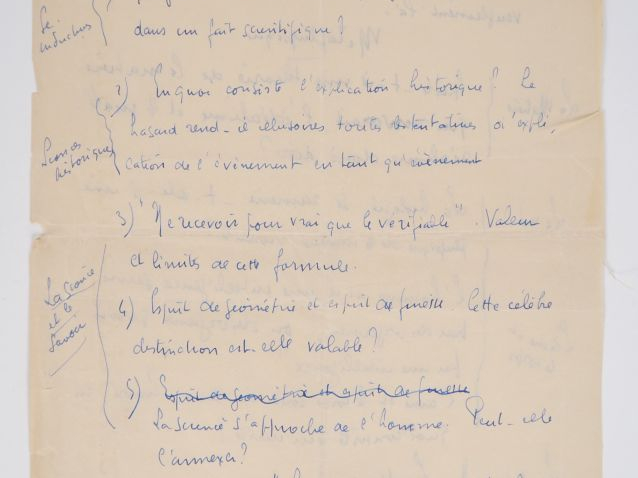 Sc.
inductives
dans un fait scientifique ?
2) En quoi consiste l'explication historique ? Le
hasard rend-il illusoires toutes les tentatives d'expli,
cation de l'événement en tant qu'événement
Sciences
historiques
3) "Ne recevoir pour vrai que le vérifiable". Valeur
et limites de cette formule.
La Science
et le
Savoir
4) Esprit de géométrie et esprit de finesse. Cette célèbre
distinction est-elle valable ?
5) Esprit de géométrie et esprit de finesse
La science s'approche de l'homme. Peut-elle
l'annexer ?